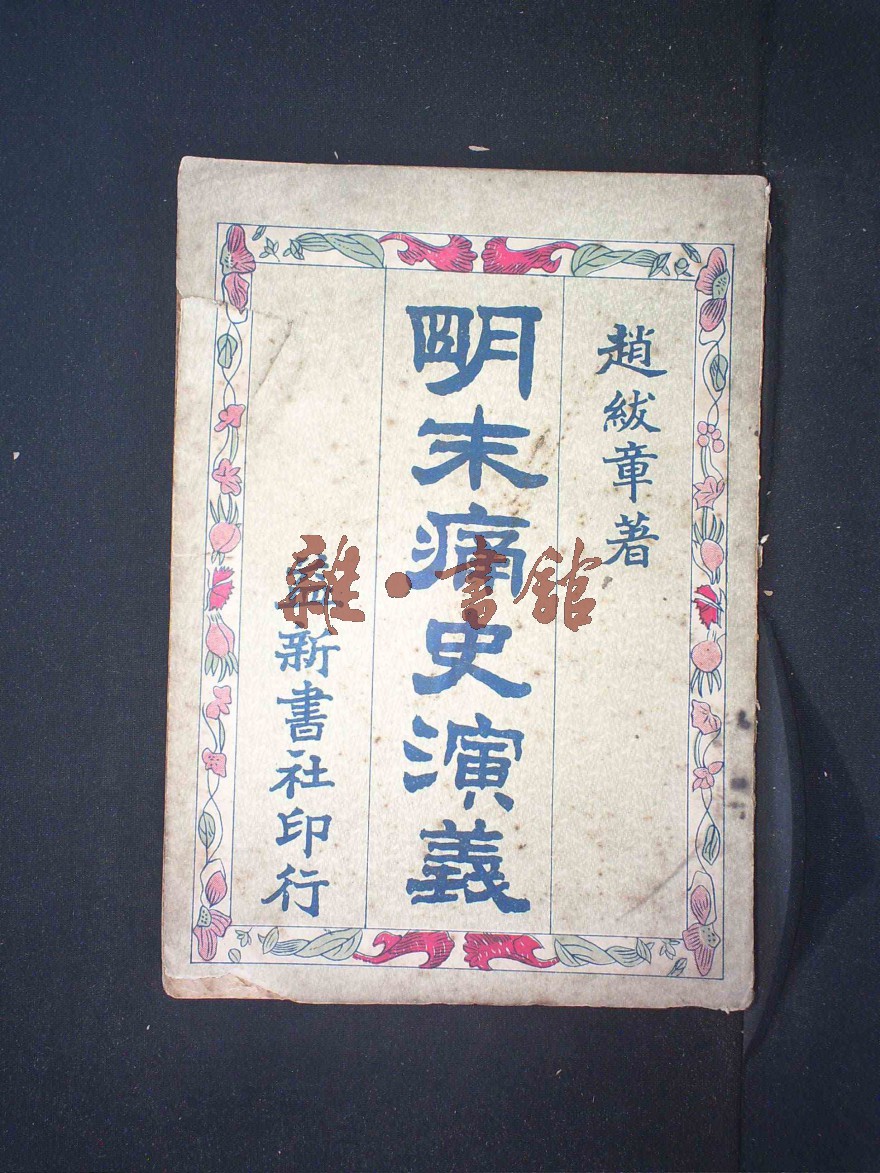 趙紱章著
明末痛史演義
益新書社印行
雜·書館